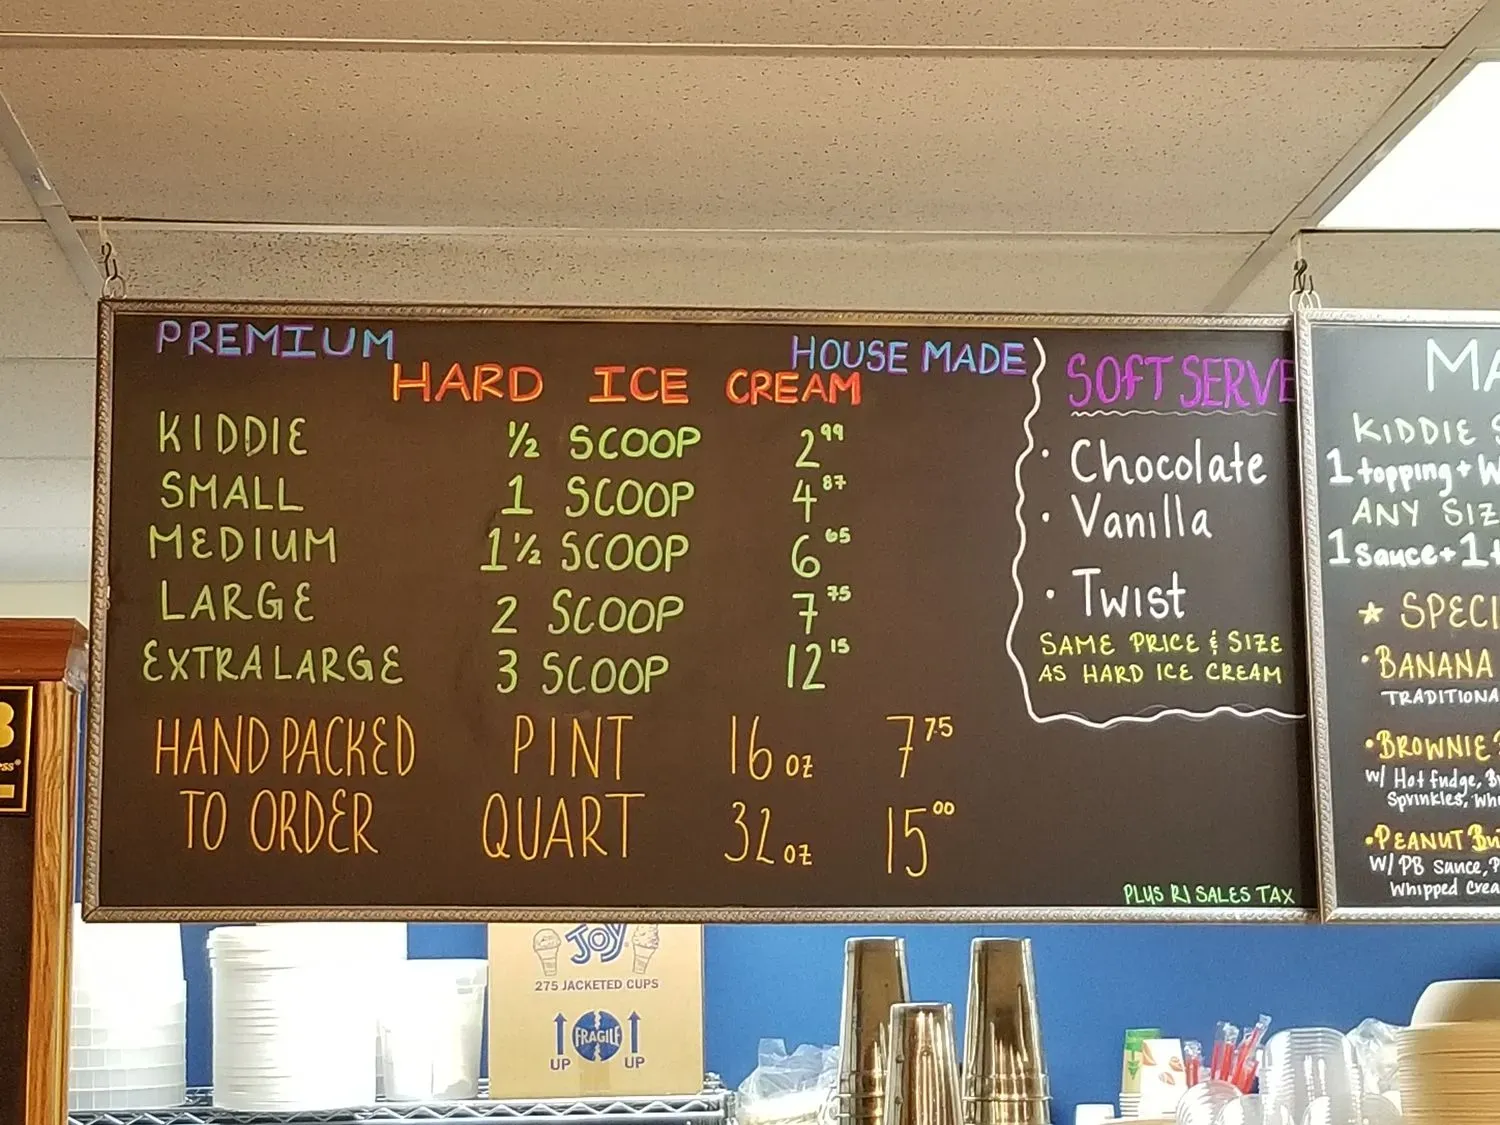 PREMIUM HOUSE MADE
HARD ICE CREAM
KIDDIE ½ SCOOP 2.99
SMALL 1 SCOOP 4.87
MEDIUM 1½ SCOOP 6.65
LARGE 2 SCOOP 7.75
EXTRA LARGE 3 SCOOP 12.15
HAND PACKED PINT 16 oz 7.75
TO ORDER QUART 32 oz 15.00
SOFT SERVE
· Chocolate
· Vanilla
· Twist
SAME PRICE & SIZE
AS HARD ICE CREAM
PLUS RI SALES TAX
KIDDIE
1 topping + W
ANY SIZ
1 sauce + 1
★ SPECI
· BANANA
TRADITIONA
· BROWNIE
w/ Hot fudge,
Sprinkles, Wh
· PEANUT Bu
w/ PB Sauce,
Whipped Crea
JOY
275 JACKETED CUPS
UP FRAGILE UP